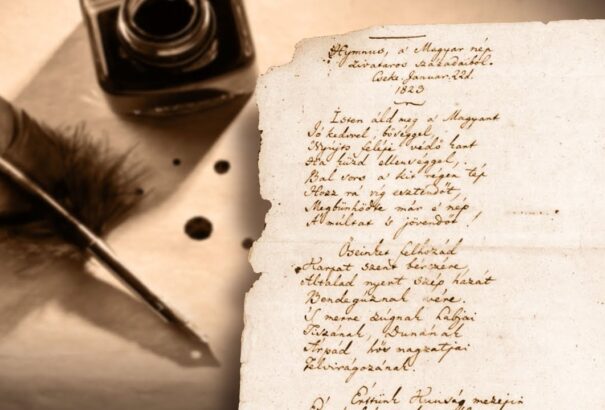 Hymnus, a Magyar nép
zivataros századaiból.
Cseke. Januar. 22d.
1823
Isten áld meg a Magyart
Jó kedvvel, bőséggel,
Nyújts feléje védő kart
Ha küzd ellenséggel,
Bal sors a kit régen tép
Hozz rá víg esztendőt,
Megbűnhődte már e nép
A múltat 's jövendőt!
Őseinket felhozád
Kárpát szent bérczére,
Általad nyert szép hazát
Bendegúznak vére.
'S merre zúgnak habjai
Tiszának, Dunának
Árpád hős magzatjai
Felvirágozának.
Értünk Kunság mezein